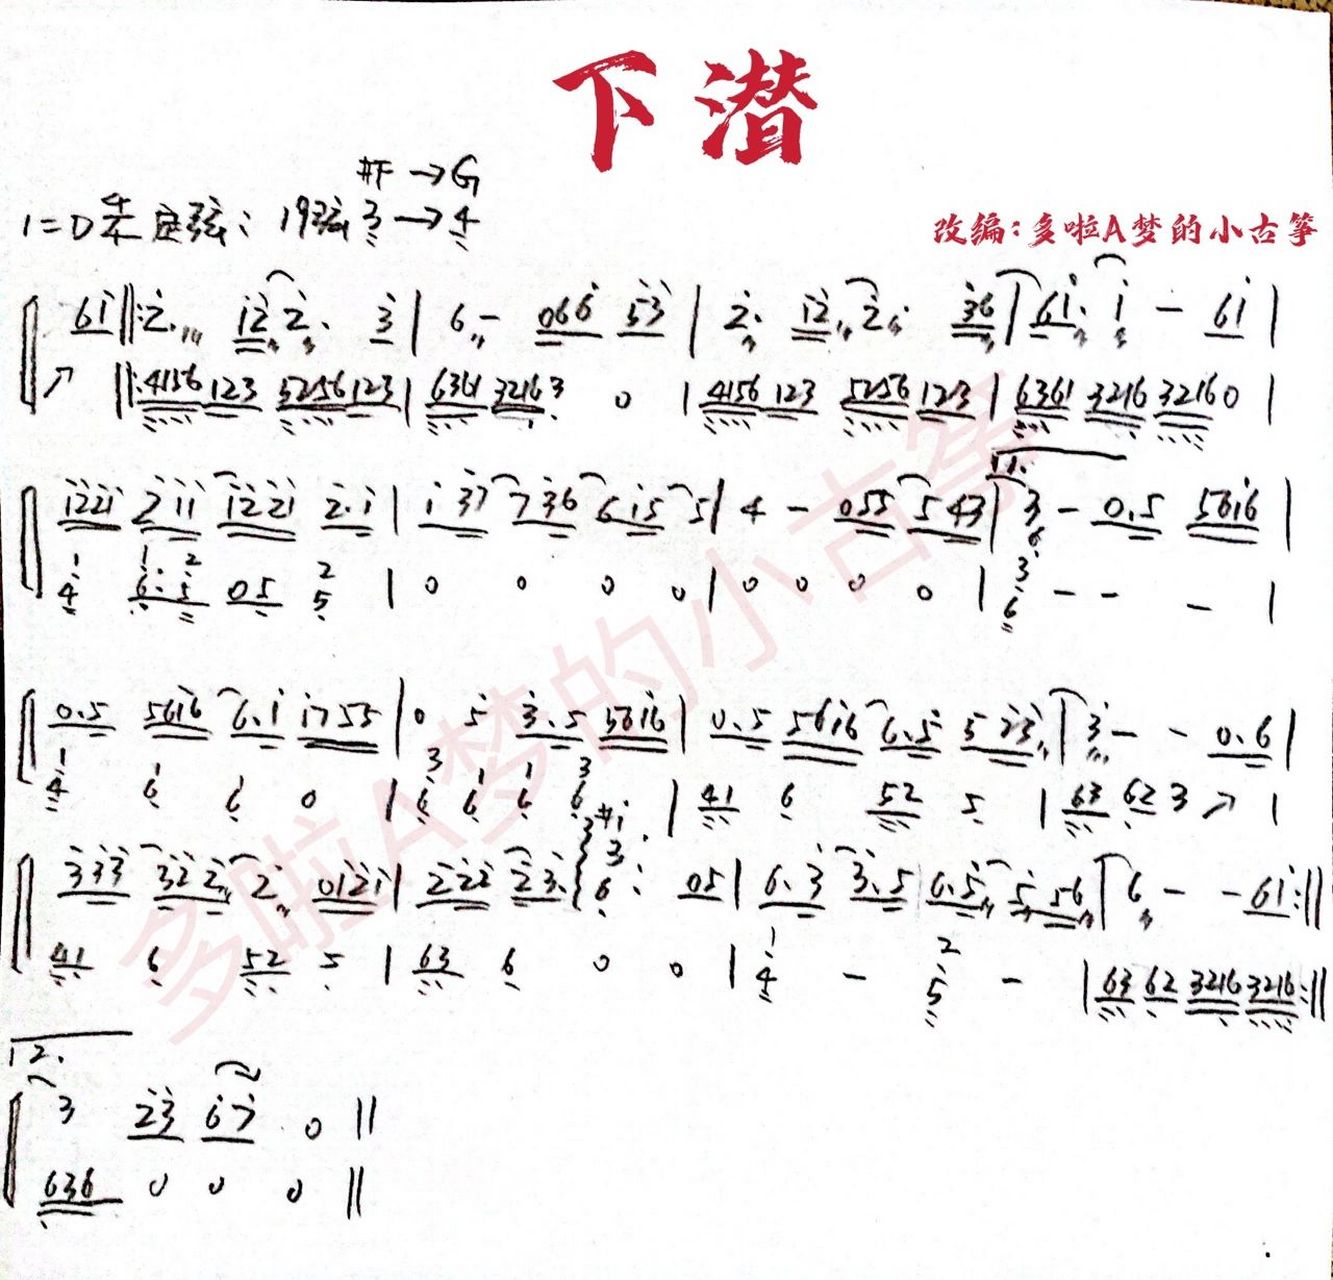 下潜
#F → G
1=D 4/4 定弦: 19弦 3 → 4
改编:多啦A梦的小古筝
61 ‖: 2. 12 2. 3 | 6 - 066 53 | 2. 12 2. 36 | 61. 1 - 61 |
↗ ‖: 4156 123 5256 123 | 6361 3216 3 0 | 4156 123 5256 123 | 6361 3216 3216 0 |
1221 211 1221 2.1 | 1 37 736 615 5 | 4 - 055 543 | 1. 3 - 0.5 5616 |
1 4 1.2 6.5 05 2 5 | 0 0 0 0 | 0 0 0 0 | 3 6 - - - |
0.5 5616 6.1 1755 | 0 5 3.5 5616 | 0.5 5616 6.5 523 | 3 - - 0.6 |
1 4 1 6 1 6 0 | 3 6 1 6 1 6 3 6 | 41 6 52 5 | 63 62 3 ↗ |
333 322 2 0121 | 222 23. #1 3 6. 05 | 6.3 3.5 6.5 556 | 6 - - 61 :‖
41 6 52 5 | 63 6 0 0 | 1 4 - 2 5 - | 63 62 3216 3216 :‖
12.
3 23 67 0 ‖
636 0 0 0 ‖
多啦A梦的小古筝